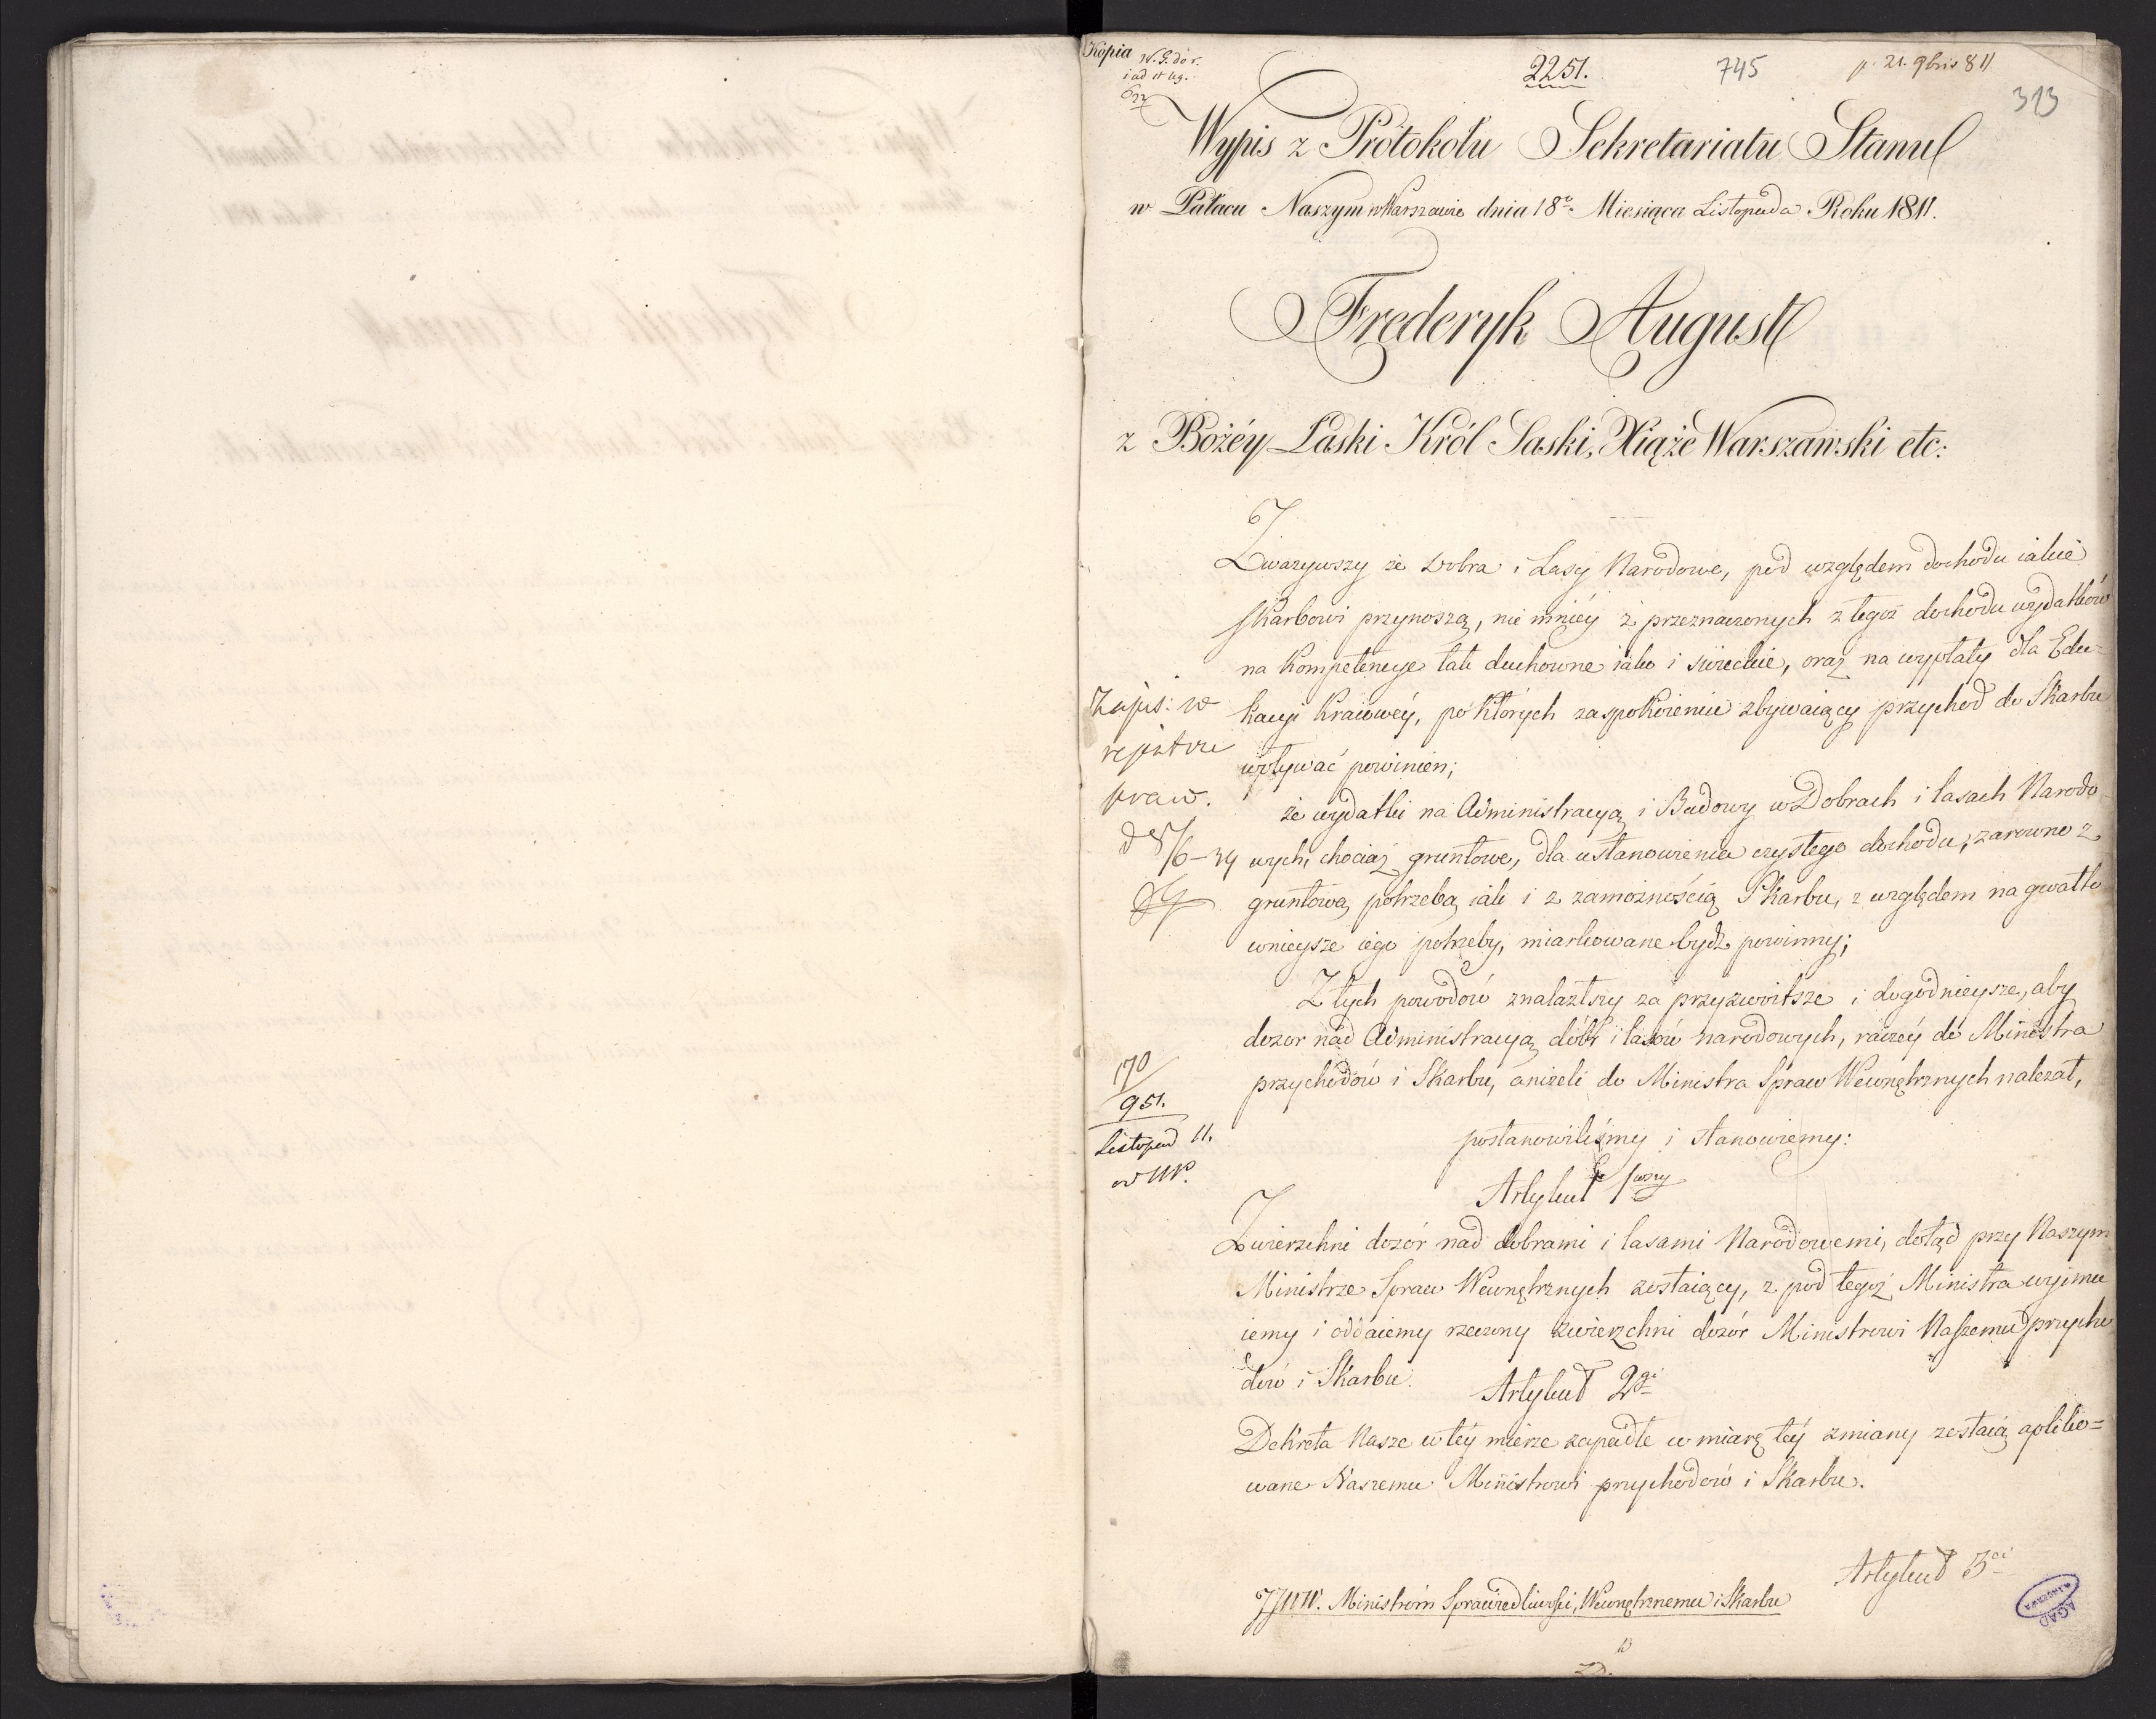 Kopia
2251.
745
p. 21. 9bris 811
313
Wypis z Protokołu Sekretariatu Stanu
w Pałacu Naszym w Warszawie dnia 18º Miesiąca Listopada Roku 1811.
Frederyk August
z Bożéy Łaski Król Saski, Xiąże Warszawski etc:
Zważywszy że Dobra i Lasy Narodowe, pod względem dochodu iakie
Skarbowi przynoszą, nie mniéy i przeznaczonych z tegoż dochodu wydatków
na kompetencye tak duchowne iako i świeckie, oraz na wypłaty dla Edu=
kacyi kraiowéy, po których zaspokoieniu zbywaiący przychod do Skarbu
wpływać powinien;
że wydatki na Administracyą i Budowy w Dobrach i lasach Narodo
wych, chociaż gruntowe, dla ustanowienia czystego dochodu, zarowno z
gruntową potrzebą iak i z zamożnością Skarbu, z względem na gwałto
wnieysze iego potrzeby, miarkowane bydź powinny;
Z tych powodów znalazłszy za przyzwoitsze i dogodnieysze, aby
dozor nad Administracyą dóbr i lasów narodowych, raczéy do Ministra
przychodów i Skarbu, aniżeli do Ministra Spraw Wewnętrznych należał,
postanowiliśmy i stanowiemy:
Artykuł 1wszy
Zwierzchni dozór nad dobrami i lasami Narodowemi, dotąd przy Naszym
Ministrze Spraw Wewnętrznych zostaiący, z pod tegoż Ministra wyimu
iemy i oddaiemy rzeczony zwierzchni dozór Ministrowi Naszemu przycho
dów i Skarbu.
Artykuł 2gi
Dekreta Nasze w téy mierze zapadłe w miarę téy zmiany zostaią apliko=
wane Naszemu Ministrowi przychodów i Skarbu.
Artykuł 3ci
JJWW. Ministróm Sprawiedliwości, Wewnętrznemu i Skarbu
Zapis: w
rejestrze
praw.
170
951.
Listopad 11.
AGAD